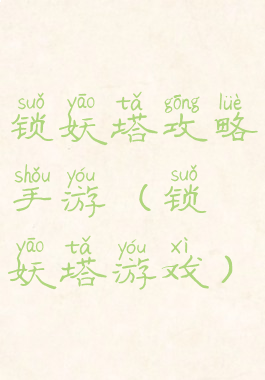 suǒ yāo tǎ gōng lüè
锁妖塔攻略
shǒu yóu suǒ
手游（锁
yāo tǎ yóu xì
妖塔游戏）